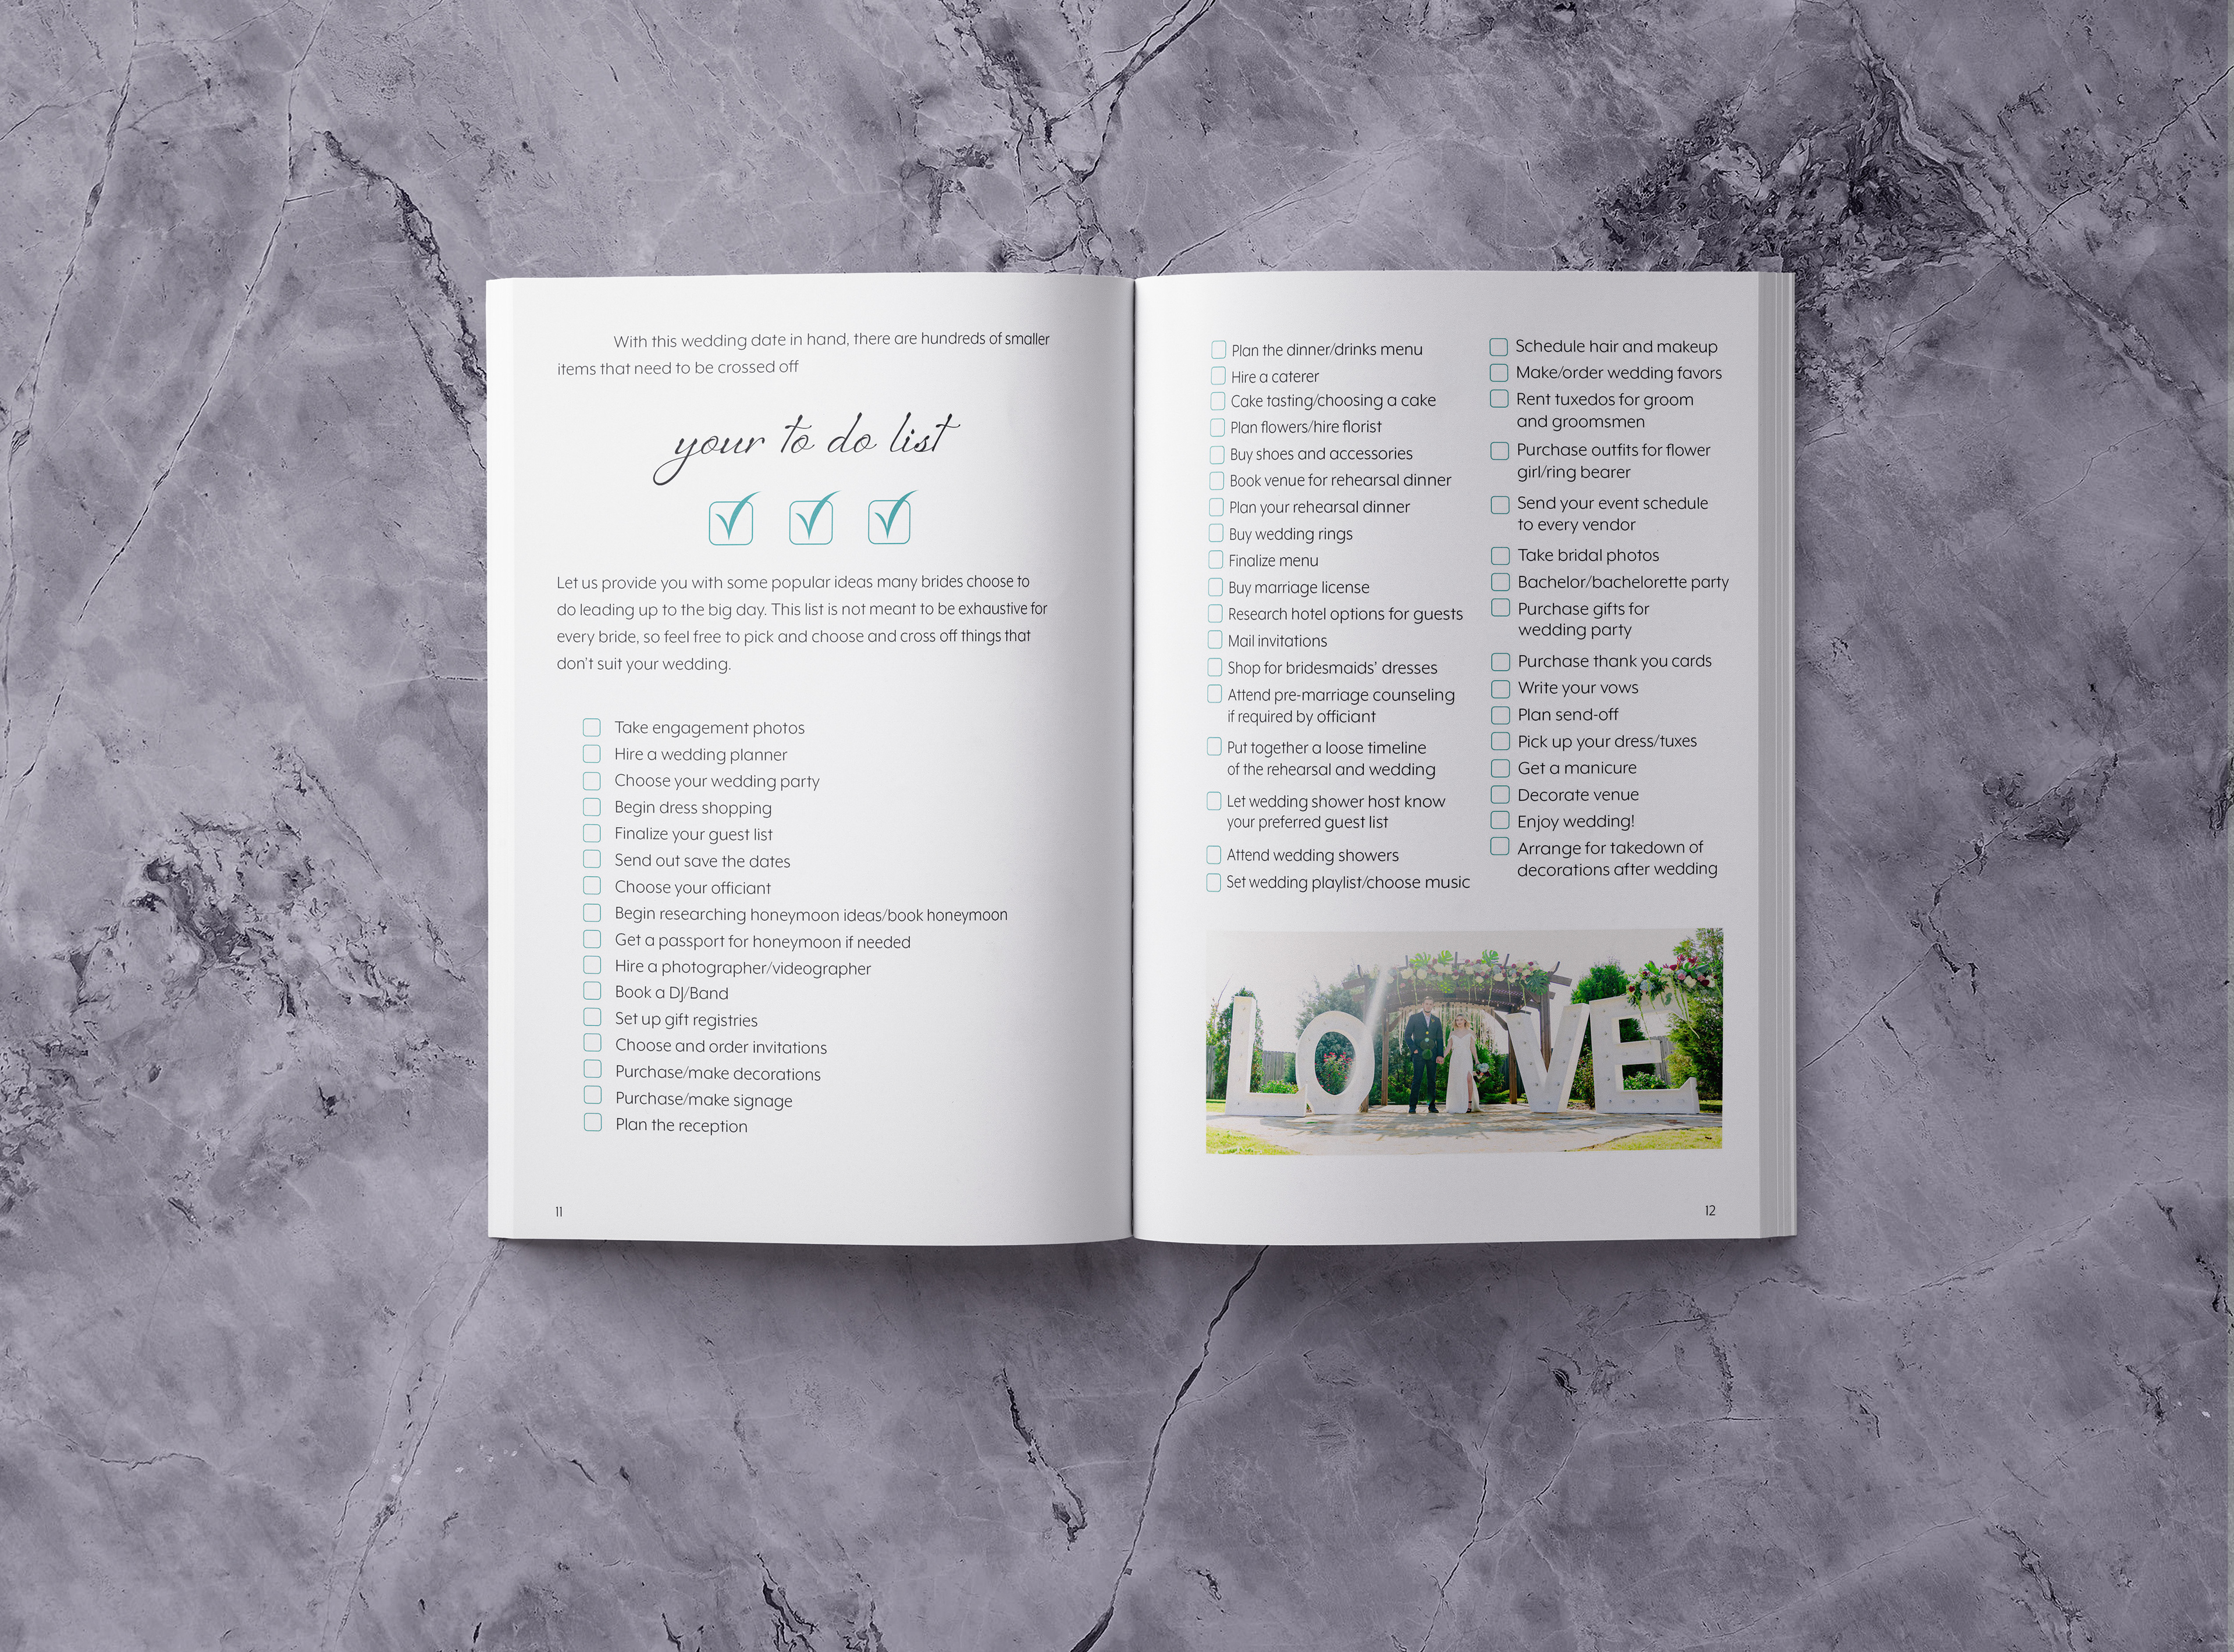 With this wedding date in hand, there are hundreds of smaller
items that need to be crossed off
your to do list
Let us provide you with some popular ideas many brides choose to
do leading up to the big day. This list is not meant to be exhaustive for
every bride, so feel free to pick and choose and cross off things that
don't suit your wedding.
Take engagement photos
Hire a wedding planner
Choose your wedding party
Begin dress shopping
Finalize your guest list
Send out save the dates
Choose your officiant
Begin researching honeymoon ideas/book honeymoon
Get a passport for honeymoon if needed
Hire a photographer/videographer
Book a DJ/Band
Set up gift registries
Choose and order invitations
Purchase/make decorations
Purchase/make signage
Plan the reception
11
Plan the dinner/drinks menu
Hire a caterer
Cake tasting/choosing a cake
Plan flowers/hire florist
Buy shoes and accessories
Book venue for rehearsal dinner
Plan your rehearsal dinner
Buy wedding rings
Finalize menu
Buy marriage license
Research hotel options for guests
Mail invitations
Shop for bridesmaids' dresses
Attend pre-marriage counseling
if required by officiant
Put together a loose timeline
of the rehearsal and wedding
Let wedding shower host know
your preferred guest list
Attend wedding showers
Set wedding playlist/choose music
Schedule hair and makeup
Make/order wedding favors
Rent tuxedos for groom
and groomsmen
Purchase outfits for flower
girl/ring bearer
Send your event schedule
to every vendor
Take bridal photos
Bachelor/bachelorette party
Purchase gifts for
wedding party
Purchase thank you cards
Write your vows
Plan send-off
Pick up your dress/tuxes
Get a manicure
Decorate venue
Enjoy wedding!
Arrange for takedown of
decorations after wedding
LOVE
12